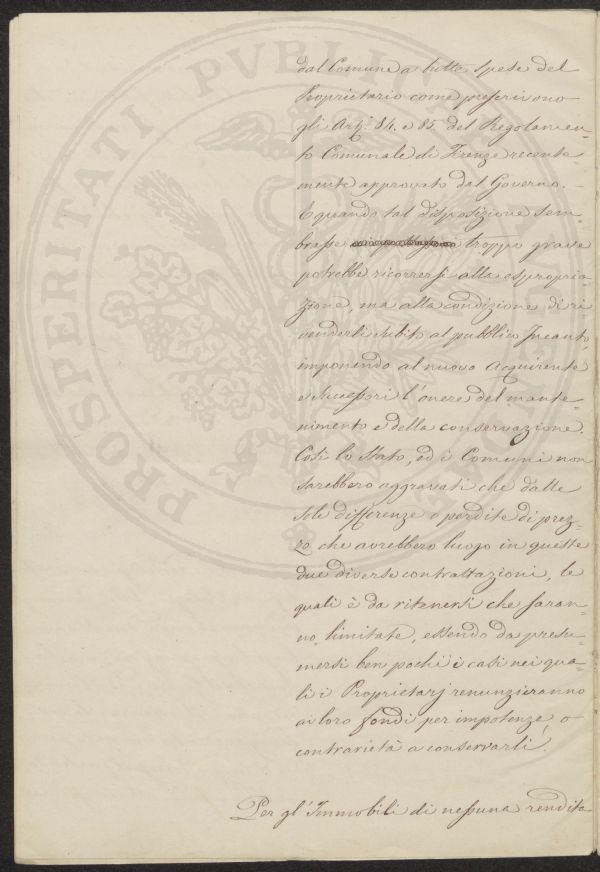 dal Comune a tutte spese del
Proprietario come prescrivono
gli Artj. 84. e 85. del Regolamen=
to Comunale di Firenze recente=
mente approvato dal Governo. -
E quando tal disposizione sem=
brasse troppo grave
potrebbe ricorrersi alla espropria=
zione, ma alla condizione di ri
venderli subito al pubblico Incanto,
imponendo al nuovo Acquirente
e Successori l'onere del mante=
nimento e della conservazione.
Così lo Stato, ed i Comuni non
sarebbero aggravati che dalle
sole differenze o perdite di prez=
zo che avrebbero luogo in queste
due diverse contrattazioni, le
quali è da ritenersi che saran=
no limitate, essendo da presu=
mersi ben pochi i casi nei qua=
li i Proprietarj renunzieranno
ai loro fondi per impotenza, o
contrarietà a conservarli.
Per gl'Immobili di nessuna rendita
PROSPERITATI PVBLI